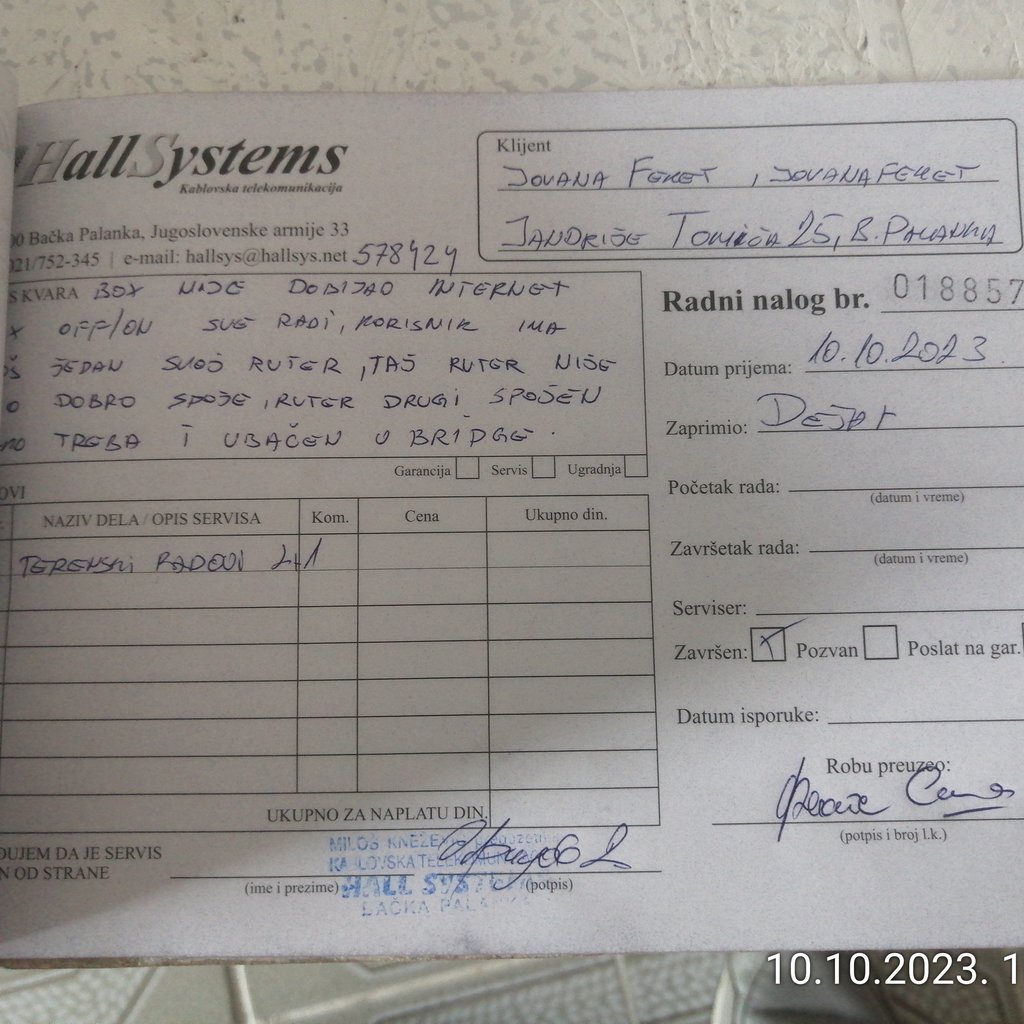 HallSystems
Kablovska telekomunikacija
00 Bačka Palanka, Jugoslovenske armije 33
021/752-345 | e-mail: hallsys@hallsys.net 578424
Klijent
JOVANA FEKET , JOVANAFEKET
JANDRIJE TOMIĆA 25, B. PALANKA
S KVARA BOX NIJE DOBIJAO INTERNET
X OFF/ON SVE RADI, KORISNIK IMA
OŠ JEDAN SVOJ RUTER, TAJ RUTER NIJE
O DOBRO SPOJE, RUTER DRUGI SPOJEN
TREBA I UBAČEN U BRIDGE.
Garancija Servis Ugradnja
Radni nalog br. 018857
Datum prijema: 10.10.2023.
Zaprimio: DEJAN
Početak rada:
(datum i vreme)
Završetak rada:
(datum i vreme)
Serviser:
Završen: Pozvan Poslat na gar.
Datum isporuke:
Robu preuzeo:
(potpis i broj l.k.)
OVI
NAZIV DELA / OPIS SERVISA Kom. Cena Ukupno din.
TERENSKI RADOVI L1 1
UKUPNO ZA NAPLATU DIN.
ĐUJEM DA JE SERVIS
N OD STRANE
(ime i prezime) (potpis)
MILOŠ KNEŽEV
KABLOVSKA TELEKOMUN
HALL SYSTEMS
BAČKA PALANKA
10.10.2023. 1